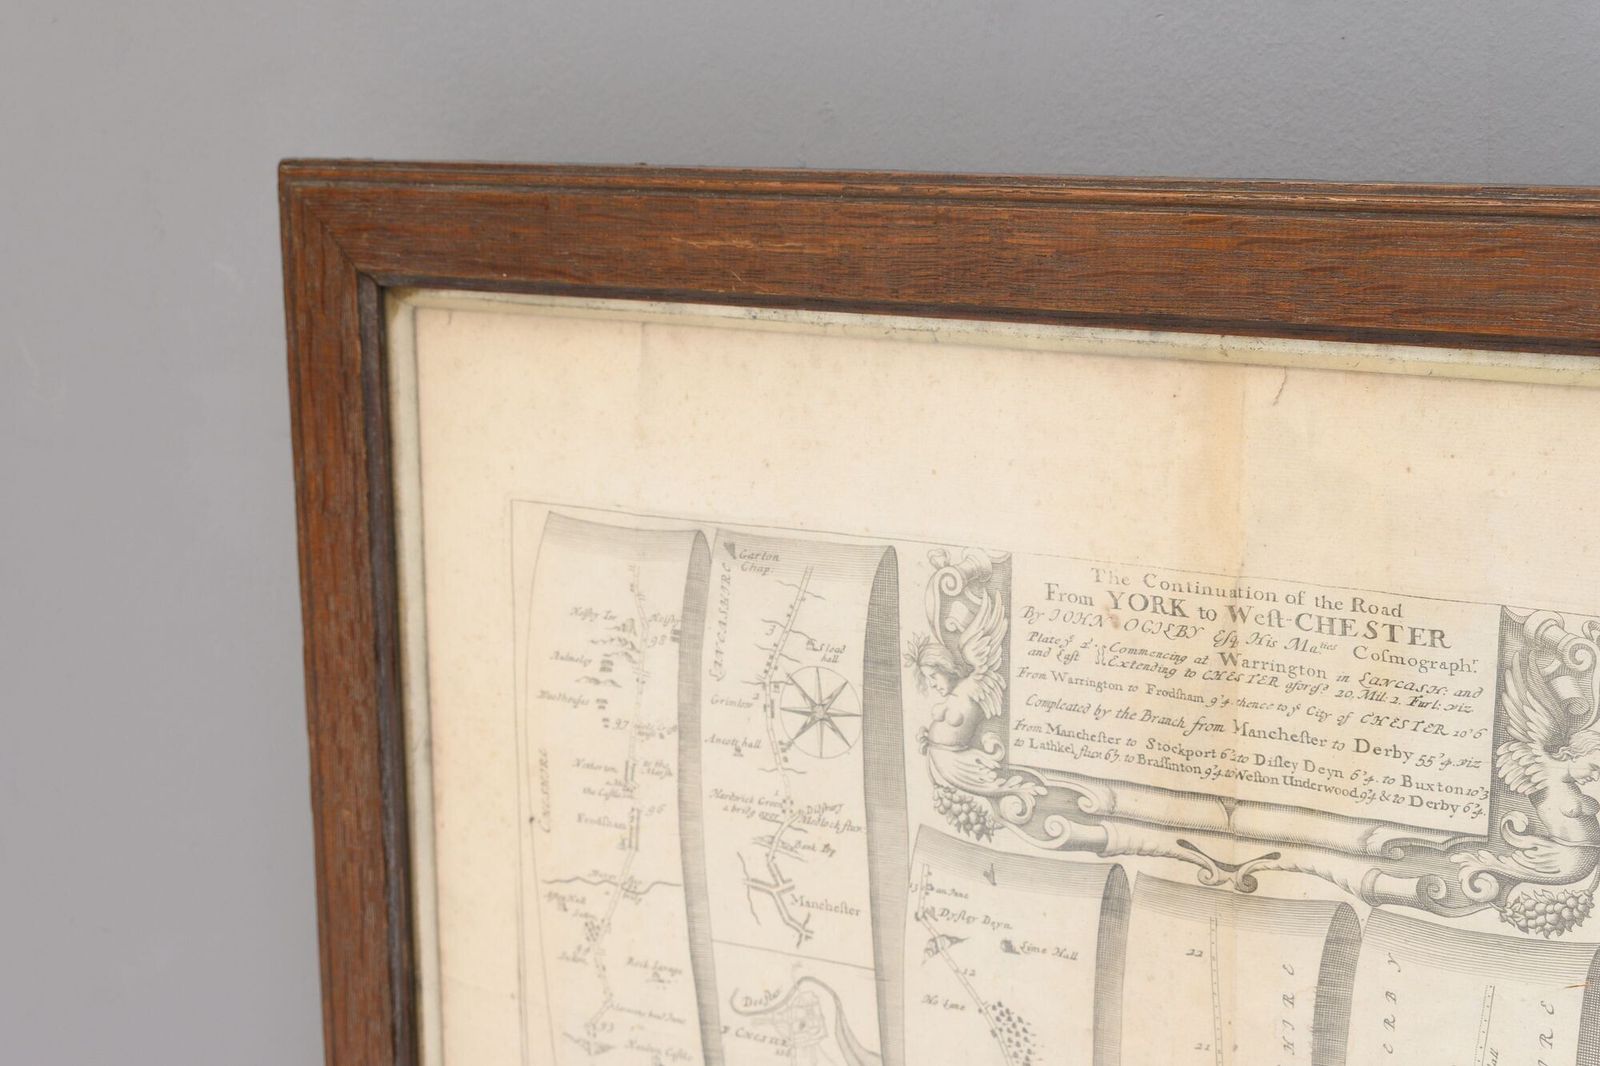 The Continuation of the Road
From YORK to West-CHESTER
By IOHN OGILBY Esq. His Ma.ties Cosmograph.r
Plate ye 2d. Commencing at Warrington in LANCASH: and
and East Extending to CHESTER aforesd. 20. Mil: 2. Furl: viz.
From Warrington to Frodsham 9'4. thence to ye City of CHESTER 10'6
Compleated by the Branch from Manchester to Derby 55'4. viz
From Manchester to Stockport 6'2. to Disley Deyn 6'4. to Buxton 10'3
to Lathkel fluv. 6'7. to Brassinton 9'4. to Weston Underwood 9'4 & to Derby 6'4.
98
97
Frodsham
96
93
CHESHIRE
LANCASHIRE
Garton
Chap.
Slead
hall
Grimlow
Ancott hall
Hardwick Green
a bridg over
Medlock fluv.
Manchester
CHESTER
13
Dysley Deyn
Lime Hall
12
No Lane
22
21
HIRE
ERBY
IRE